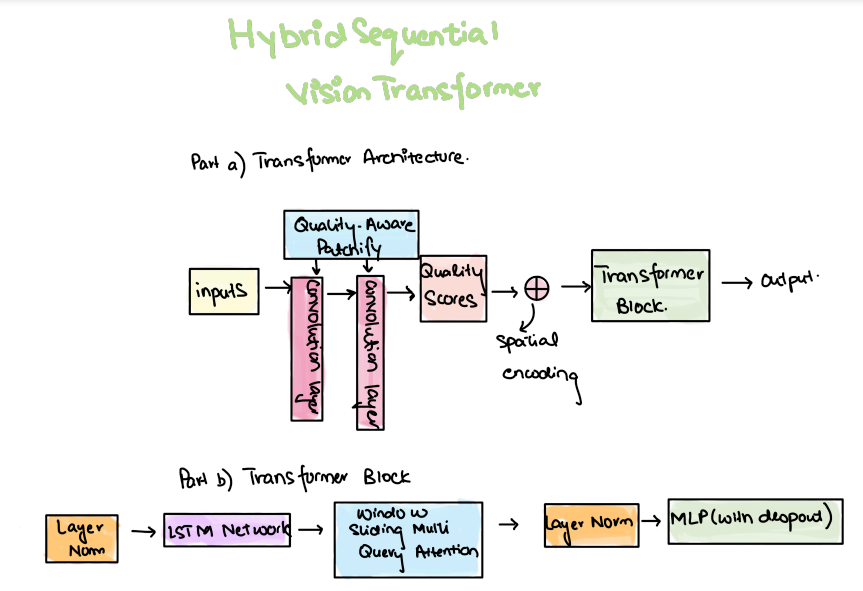 Hybrid Sequential
Vision Transformer
Part a) Transformer Architecture.
Quality-Aware
Patchify
inputs
Convolution layer
Convolution layer
Quality
Scores
Transformer
Block.
output.
spatial
encoding
Part b) Transformer Block
Layer
Norm
LSTM Network
Window
Sliding Multi
Query Attention
Layer Norm
MLP (with dropout)